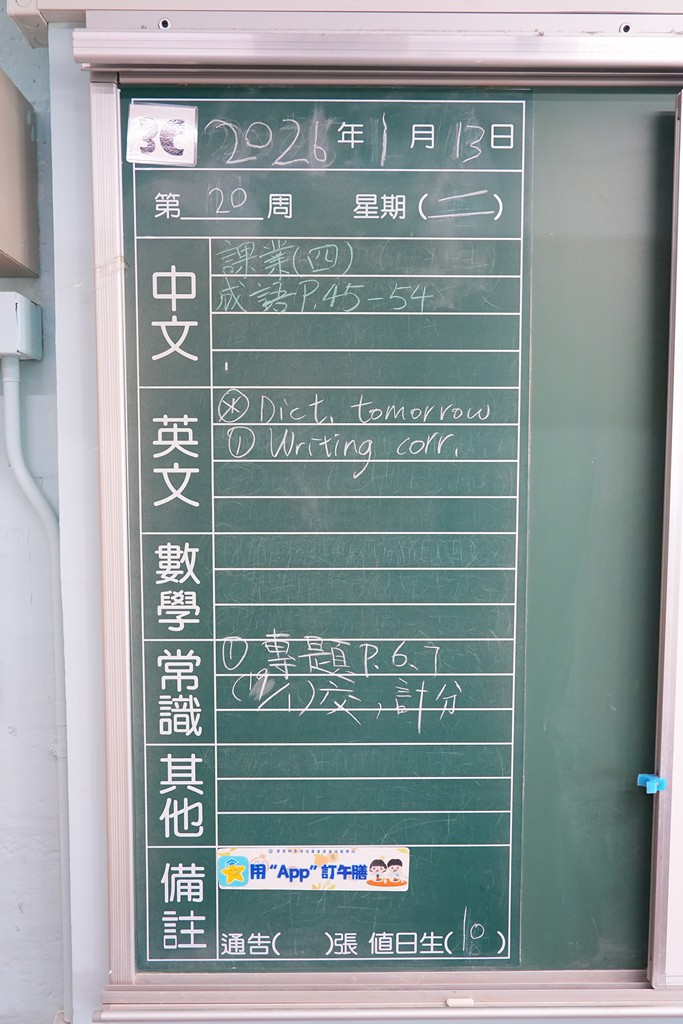 3C 2026年1月13日
第20周 星期(二)
中文
課業(四)
成語P.45-54
英文
* Dict. tomorrow
① Writing corr.
數學
常識
① 專題P.6、7
(19/1)交，計分
其他
備註
用“App”訂午膳
通告( )張 值日生(10)